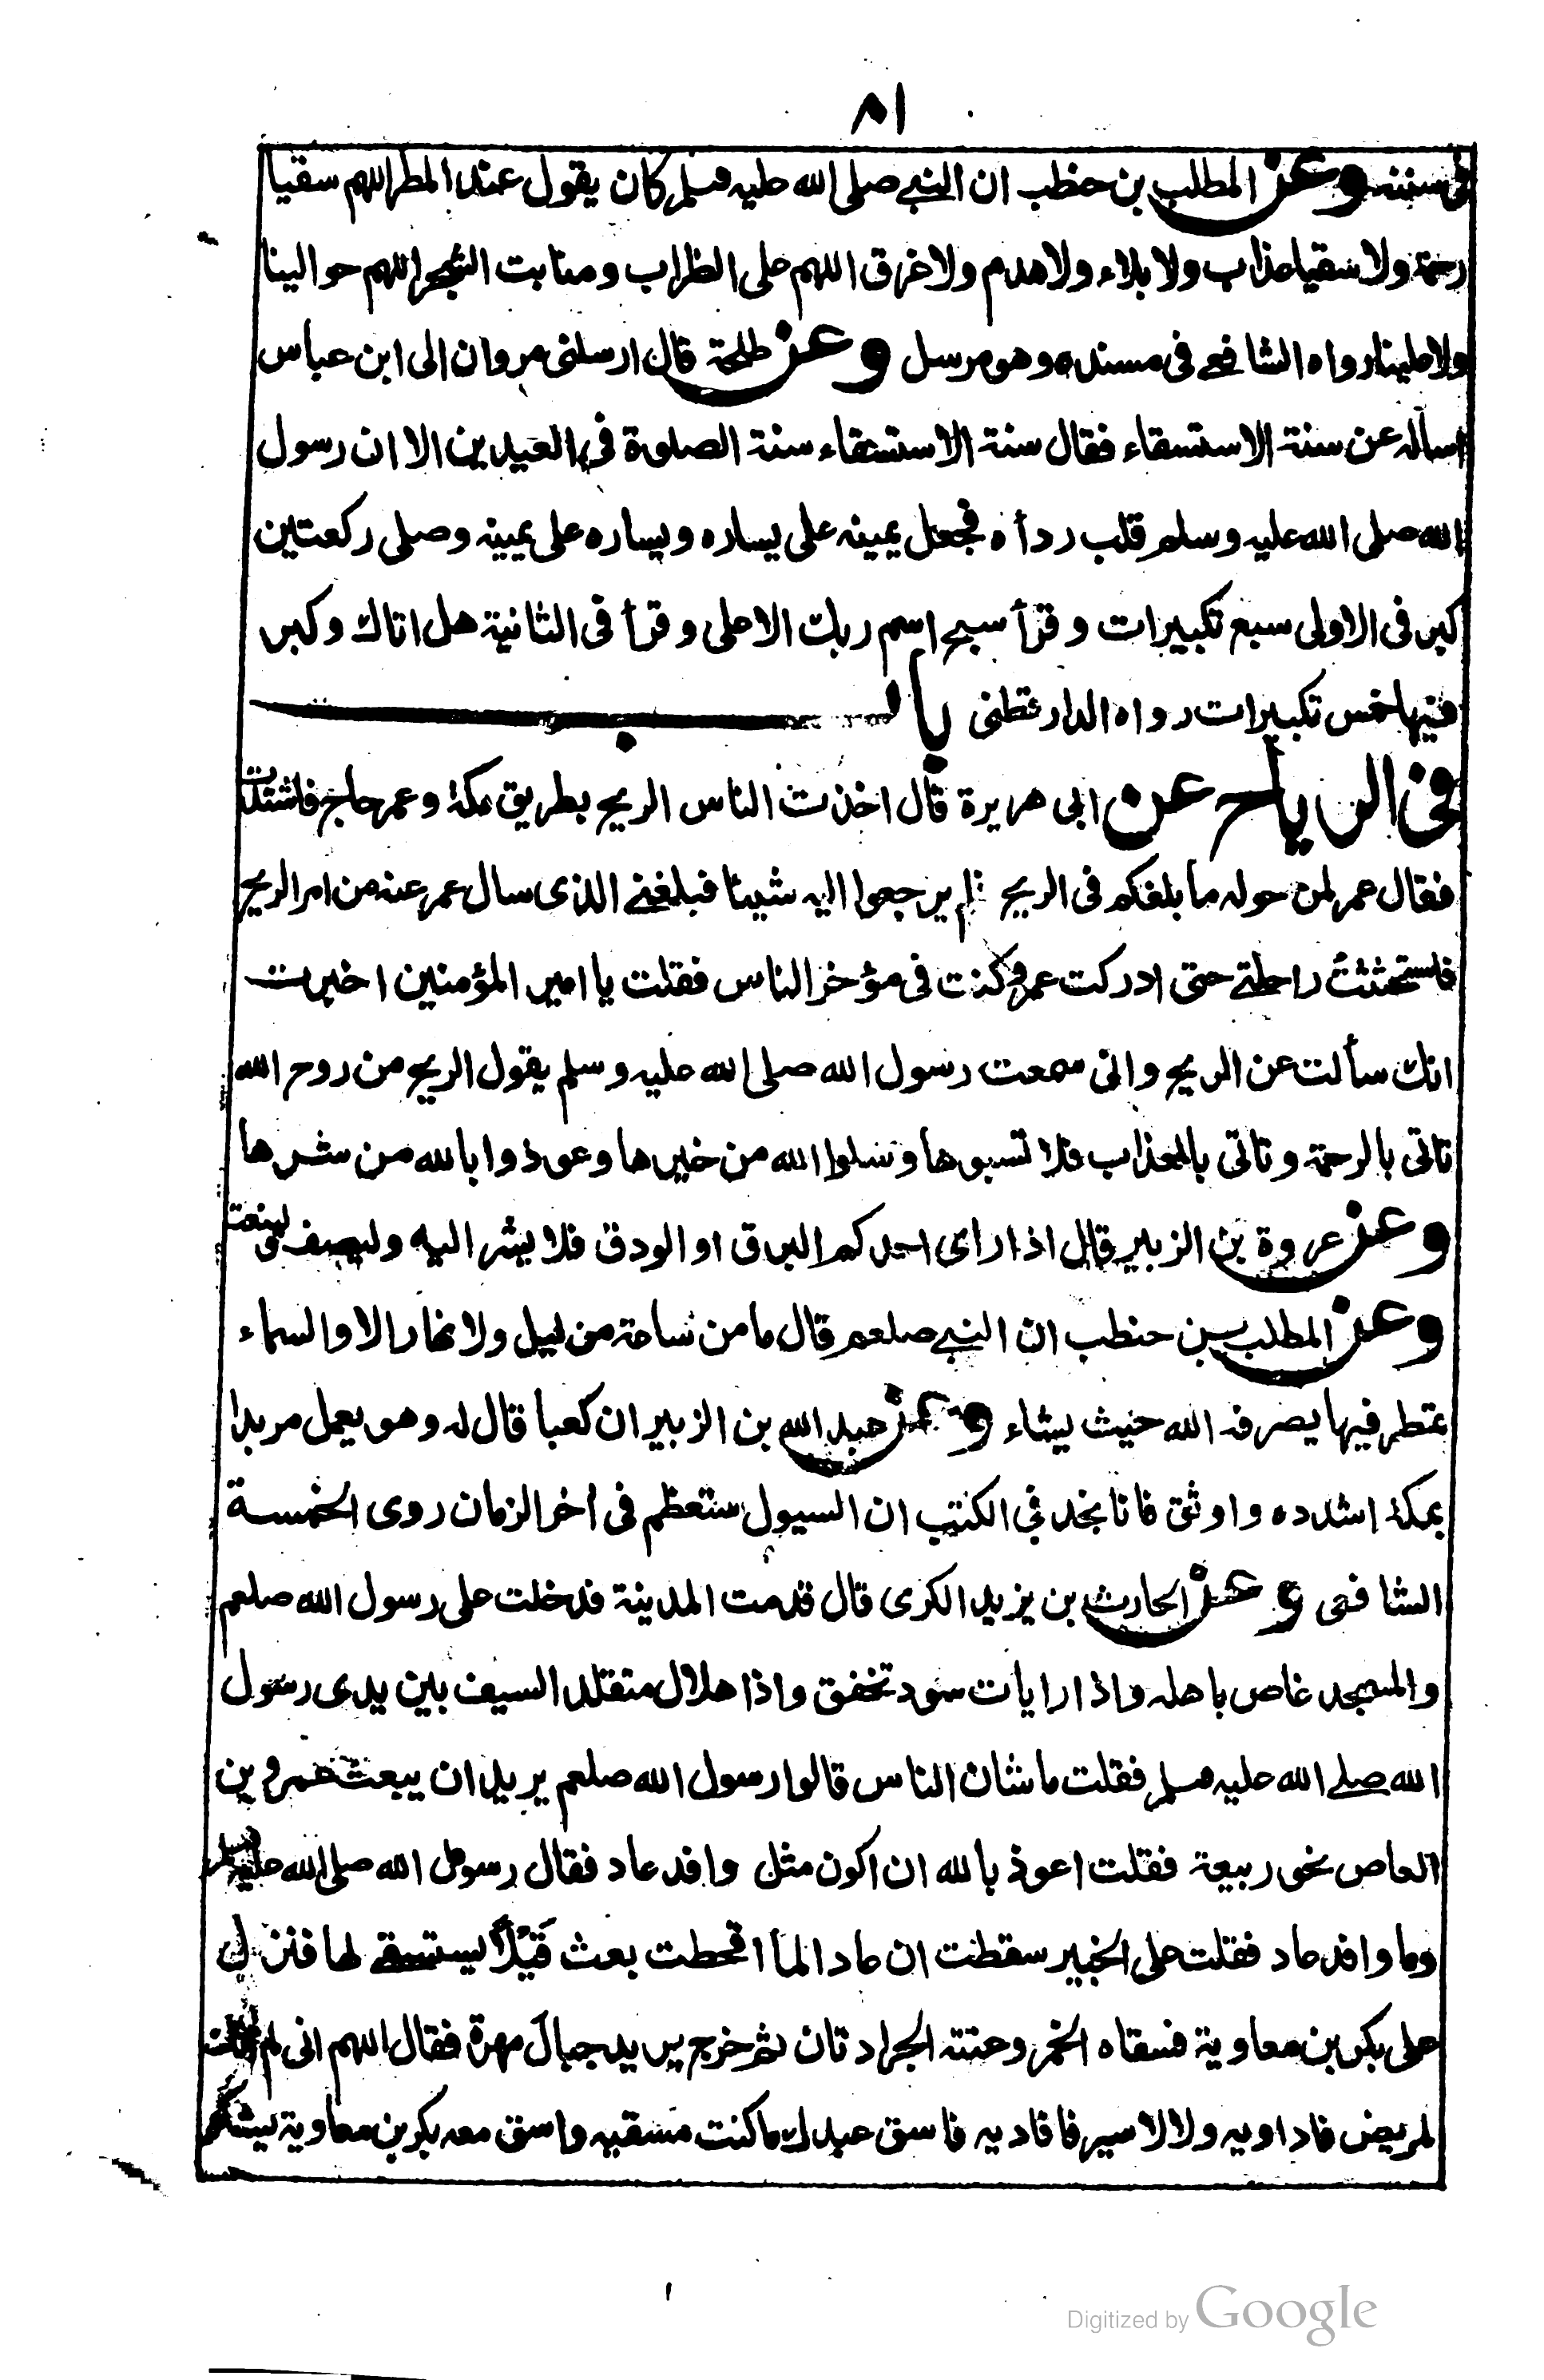 ٨١
فى سننه وعن المطلب بن حنطب ان النبى صلى الله عليه وسلم كان يقول عند المطر اللهم سقيا
رحمة ولا سقيا عذاب ولا بلاء ولا هدم ولا غرق اللهم على الظراب ومنابت الشجر اللهم حوالينا
ولا علينا رواه الشافعى فى مسنده وهو مرسل وعن طلحة قال ارسلنى مروان الى ابن عباس
اسأله عن سنة الاستسقاء فقال سنة الاستسقاء سنة الصلوة فى العيدين الا ان رسول
الله صلى الله عليه وسلم قلب ردأه فجعل يمينه على يساره ويساره على يمينه وصلى ركعتين
كبر فى الاولى سبع تكبيرات وقرأ سبح اسم ربك الاعلى وقرأ فى الثانية هل اتاك وكبر
فيها خمس تكبيرات رواه الدارقطنى باب
فى الرياح عن ابى هريرة قال اخذت الناس الريح بطريق مكة وعمر حاج فاشتدت
فقال عمر لمن حوله ما بلغكم فى الريح فلم يرجعوا اليه شيئا فبلغنى الذى سال عمر عنه من امر الريح
فاستحثثت راحلتى حتى ادركت عمر وكنت فى مؤخر الناس فقلت يا امير المؤمنين اخبرت
انك سألت عن الريح وانى سمعت رسول الله صلى الله عليه وسلم يقول الريح من روح الله
تاتى بالرحمة وتاتى بالعذاب فلا تسبوها وسلوا الله من خيرها وعوذوا بالله من شرها
وعن عروة بن الزبير قال اذا راى احدكم البرق او الودق فلا يشر اليه وليصف ولينعت
وعن المطلب بن حنطب ان النبى صلعم قال ما من ساعة من ليل ولا نهار الا والسماء
تمطر فيها يصرفه الله حيث يشاء وعن عبد الله بن الزبير ان كعبا قال له وهو يعمل مربدا
بمكة اشدده واوثق فانا نجد فى الكتب ان السيول ستعظم فى اخر الزمان روى الخمسة
الشافعى وعن الحارث بن يزيد الكرى قال قدمت المدينة فدخلت على رسول الله صلعم
والمسجد غاص باهله واذا رايات سود تخفق واذا هلال متقلد السيف بين يدى رسول
الله صلى الله عليه وسلم فقلت ما شان الناس قالوا رسول الله صلعم يريد ان يبعث عمرو بن
العاص نحو ربيعة فقلت اعوذ بالله ان اكون مثل وافد عاد فقال رسول الله صلى الله عليه وسلم
وما وافد عاد فقلت على الخبير سقطت ان عاد المأ اقحطت بعث قَيْلاً يستسقى لها فنزل
على بكر بن معاوية فسقاه الخمر وغنته الجرادتان ثم خرج يريد جبال مهرة فقال اللهم انى لم
لمريض فاداويه ولا لاسير فافاديه فاسق عبدك ما كنت مسقيه واسق معه بكر بن معاوية يشكر
Digitized by Google